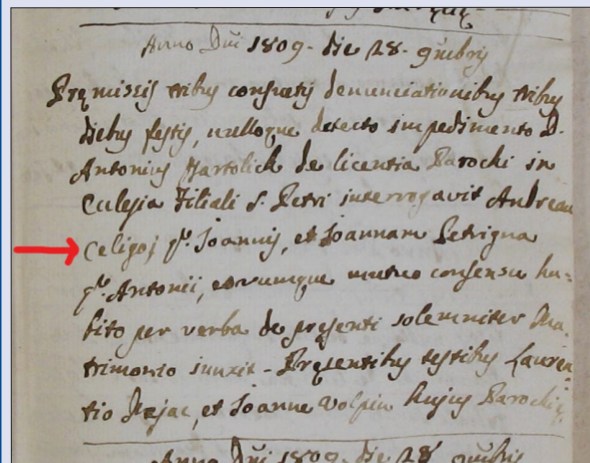 Anno Dni 1809. die 28. 9mbris
Premissis tribus consuetis denunciationibus tribus
diebus festis, nulloque detecto impedimento D.
Antonius Martolich de licentia Parochi in
Eclesia Filiali S. Petri interrogavit Andream
Celigoj qm. Joannis, et Joannam Petrigna
qm. Antonii, eorumque mutuo consensu ha=
bito per verba de presenti solemniter Ma
trimonio junxit - Presentibus testibus Lauren
tio et Joanne Volpin hujus Parochię
Anno Dni 1809. die 28 9mbris